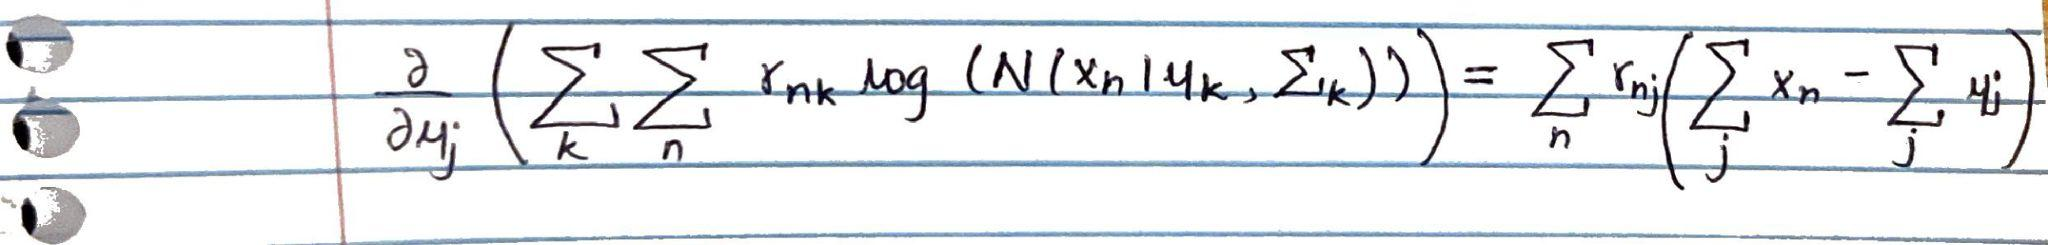 ∂/∂μ_j ( ∑_k ∑_n r_{nk} log (N(x_n | μ_k, Σ_k)) ) = ∑_n r_{nj} ( ∑_j x_n - ∑_j μ_j )